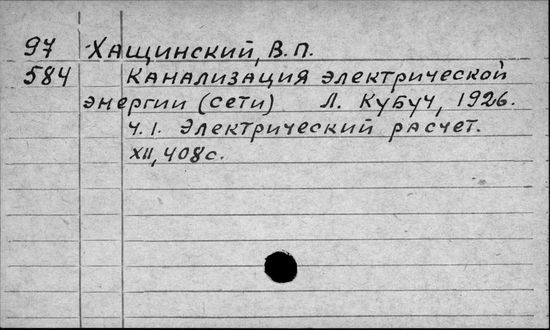 97 Хащинский, В.П.
584 Канализация электрической
энергии (сети) Л. Кубуч, 1926.
Ч.1. Электрический расчет.
XII, 408с.